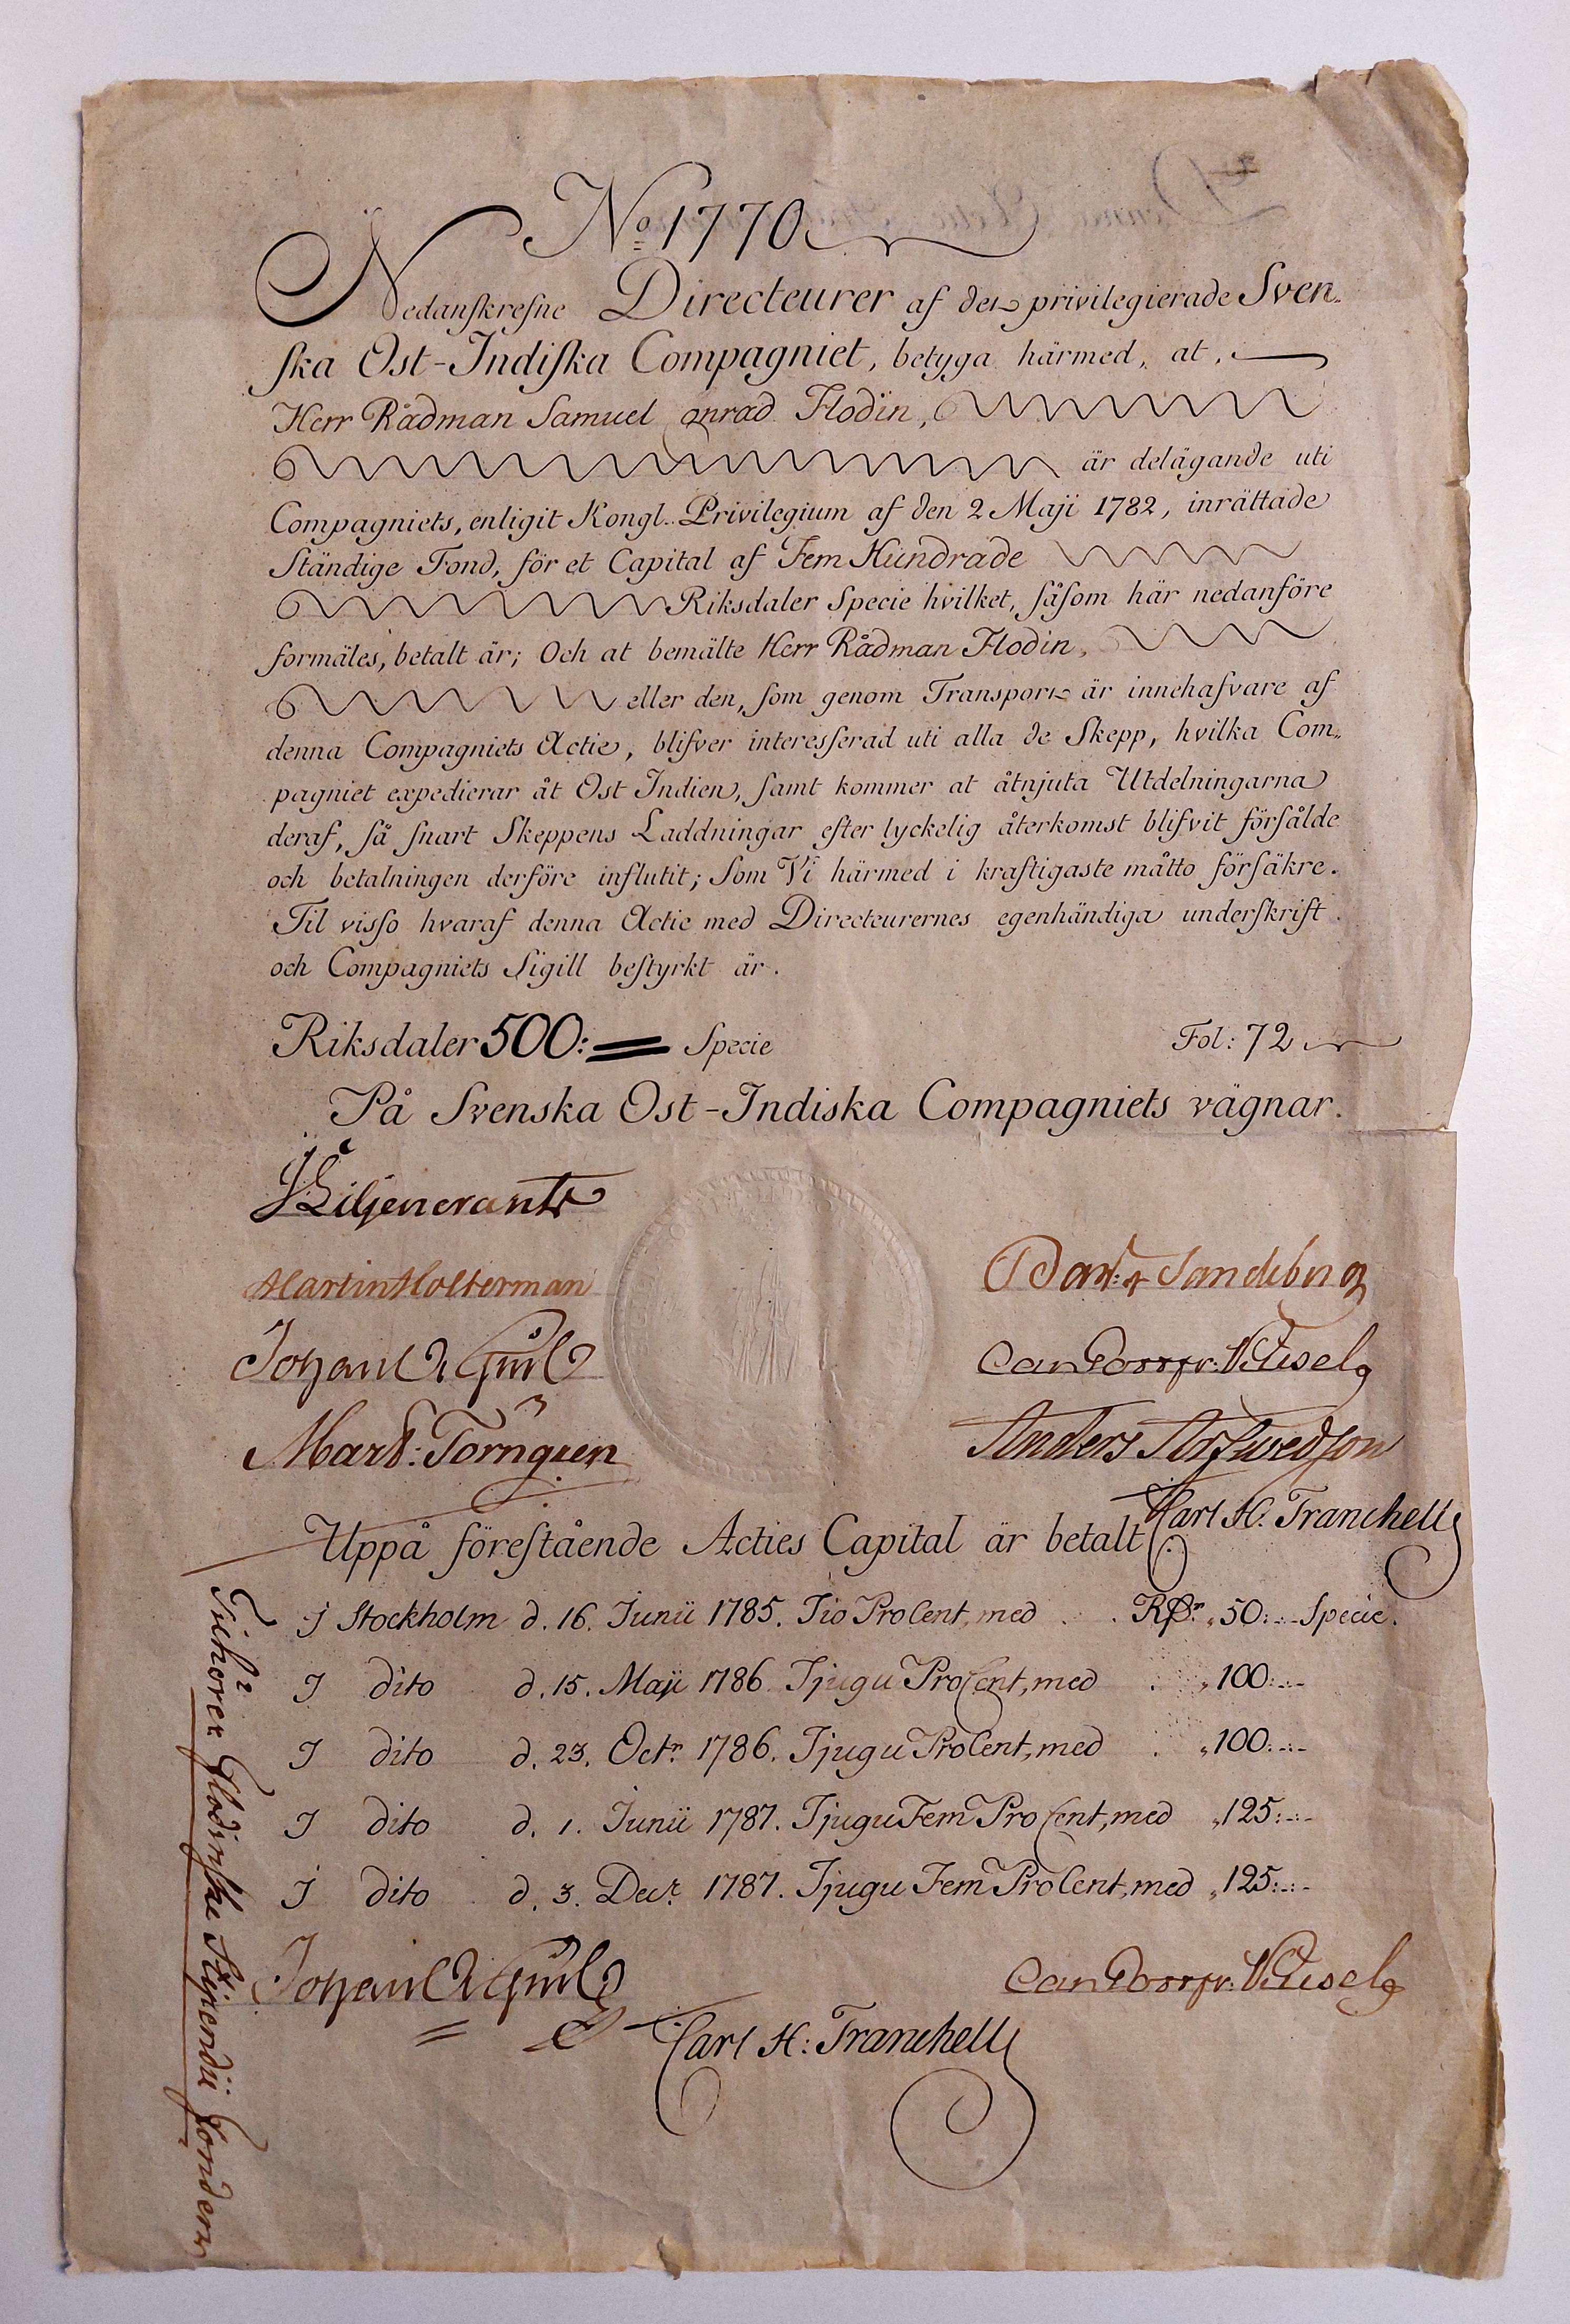 No 1770
Nedanskrefne Directeurer af det privilegierade Sven-
ska Ost-Indiska Compagniet, betyga härmed, at,
Herr Rådman Samuel Conrad Flodin,
är delägande uti
Compagniets, enligit Kongl. Privilegium af den 2 Maji 1782, inrättade
Ständige Fond, för et Capital af Fem Hundrade
Riksdaler Specie hvilket, såsom här nedanföre
formäles, betalt är; Och at bemälte Herr Rådman Flodin,
eller den, som genom Transport är innehafvare af
denna Compagniets Actie, blifver interesserad uti alla de Skepp, hvilka Com-
pagniet expedierar åt Ost Indien, samt kommer at åtnjuta Utdelningarna
deraf, så snart Skeppens Laddningar efter lyckelig återkomst blifvit försålde
och betalningen derföre influtit; Som Vi härmed i kraftigaste måtto försäkre.
Til visso hvaraf denna Actie med Directeurernes egenhändiga underskrift
och Compagniets Sigill bestyrkt är.
Riksdaler 500: Specie Fol: 72
På Svenska Ost-Indiska Compagniets vägnar.
Liljencrants
Martin Holterman
Johan
Mart: Törngren
Sandeberg
Anders Arfwedson
Carl H. Tranchell
Uppå förestående Acties Capital är betalt:
I Stockholm d. 16. Junii 1785. Tio ProCent, med Rdr 50: Specie.
I dito d. 15. Maji 1786. Tjugu ProCent, med 100:
I dito d. 23. Octr 1786. Tjugu ProCent, med 100:
I dito d. 1. Junii 1787. Tjugu Fem ProCent, med 125:
I dito d. 3. Decr 1787. Tjugu Fem ProCent, med 125:
Johan
Carl H: Tranchell
Tilhörer Flodinske Stipendii Fonden